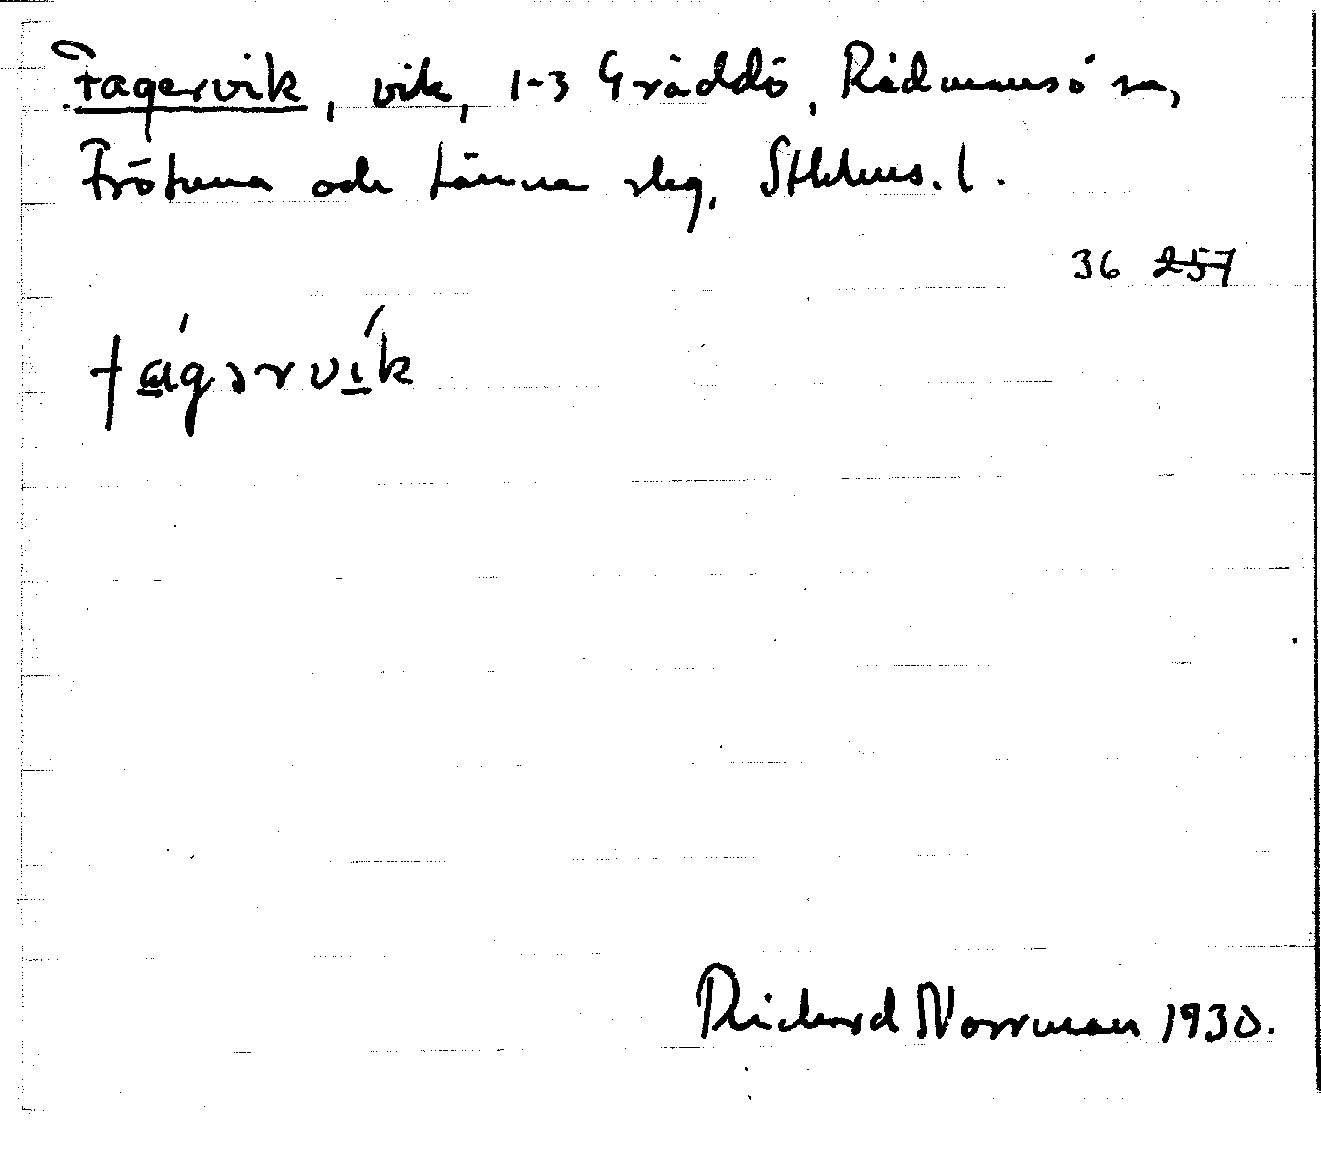 Fagervik, vik, 1-3 Gräddö, Rådmansö sn,
Frötuna och Länna skg, Sthlms. l.
36 257
fágərvík
Richard Norrman 1930.